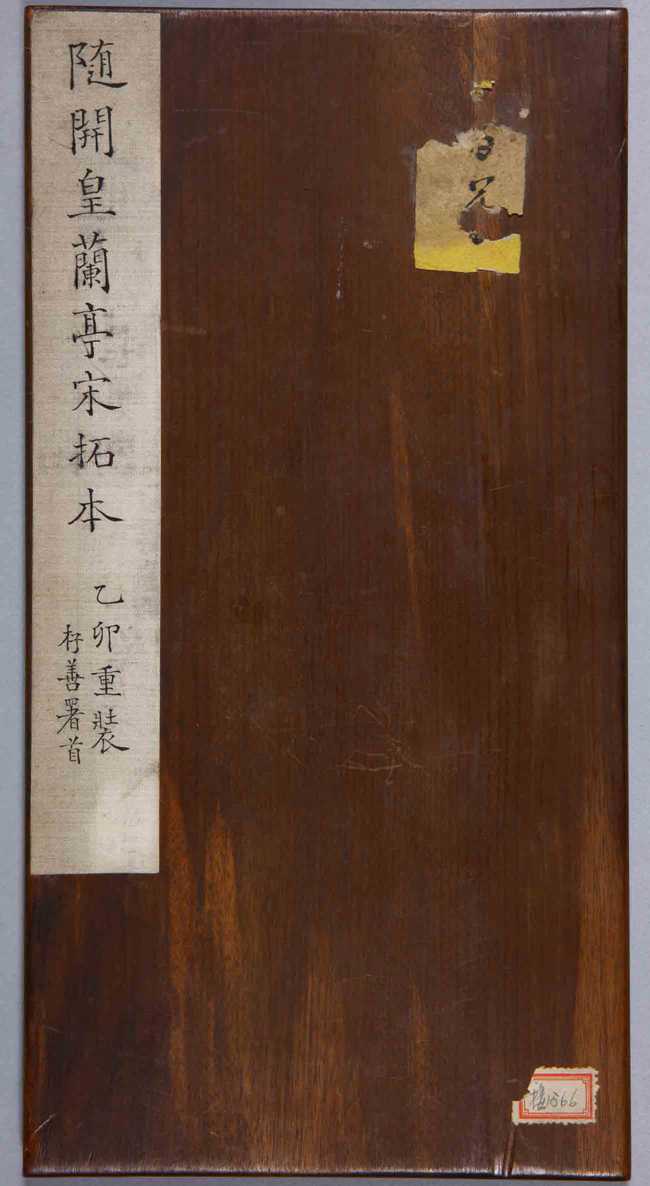 随開皇蘭亭宋拓本
乙卯重裝
杍善署首
1566